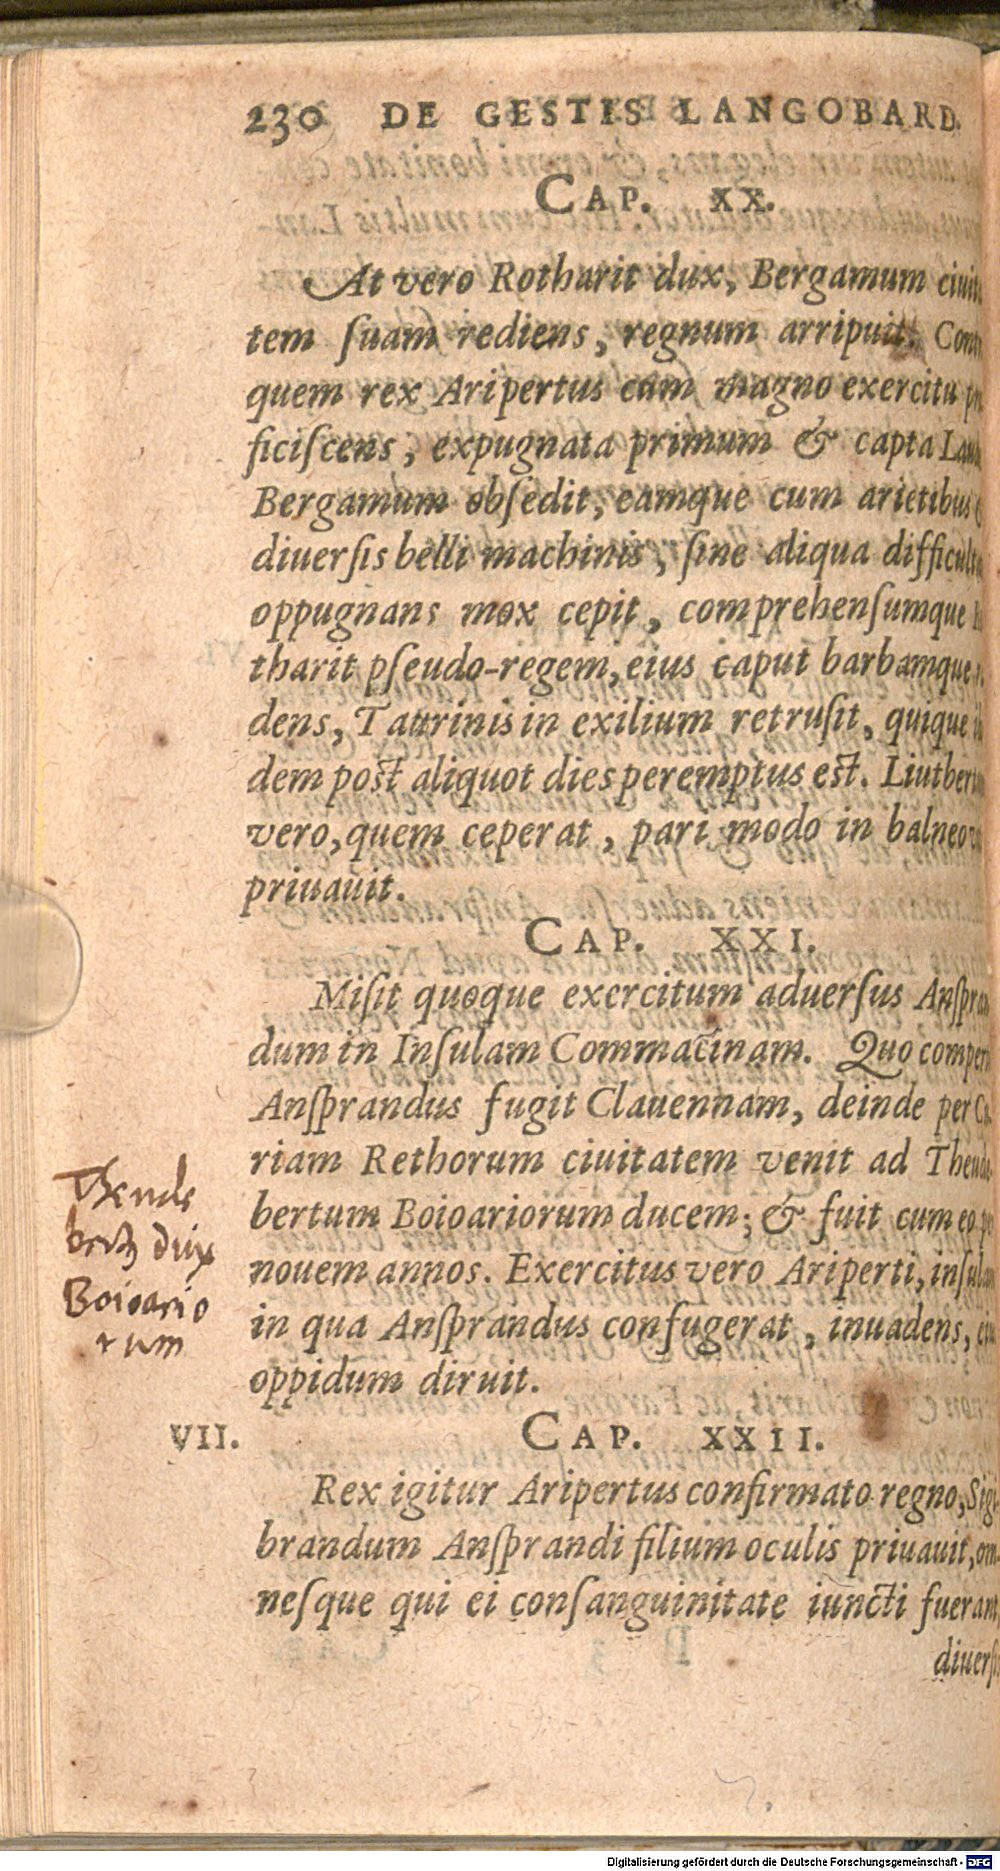 230 DE GESTIS LANGOBARD.
CAP. XX.
At vero Rotharit dux, Bergamum
tem ſuam rediens, regnum arripuit.
quem rex Aripertus cum magno exercitu
ficiſcens, expugnata primum & capta
Bergamum obſedit, eamque cum arietibus
diuerſis belli machinis, ſine aliqua
oppugnans mox cepit, comprehenſumque
tharit pſeudo-regem, eius caput barbamque
dens, Taurinis in exilium retruſit, quique
dem poſt aliquot dies peremptus eſt.
vero, quem ceperat, pari modo in balneo
priuauit.
CAP. XXI.
Miſit quoque exercitum aduerſus
dum in Inſulam Commacinam. Quo
Anſprandus fugit Clauennam, deinde per
riam Rethorum ciuitatem venit ad
bertum Boioariorum ducem; & fuit cum eo
nouem annos. Exercitus vero Ariperti,
in qua Anſprandus confugerat, inuadens,
oppidum diruit.
Theude
dux
Boioario
rum
VII. CAP. XXII.
Rex igitur Aripertus confirmato regno, Sigi
brandum Anſprandi filium oculis priuauit, om
neſque qui ei conſanguinitate iuncti fuerant,
Digitalisierung gefördert durch die Deutsche Forschungsgemeinschaft - DFG